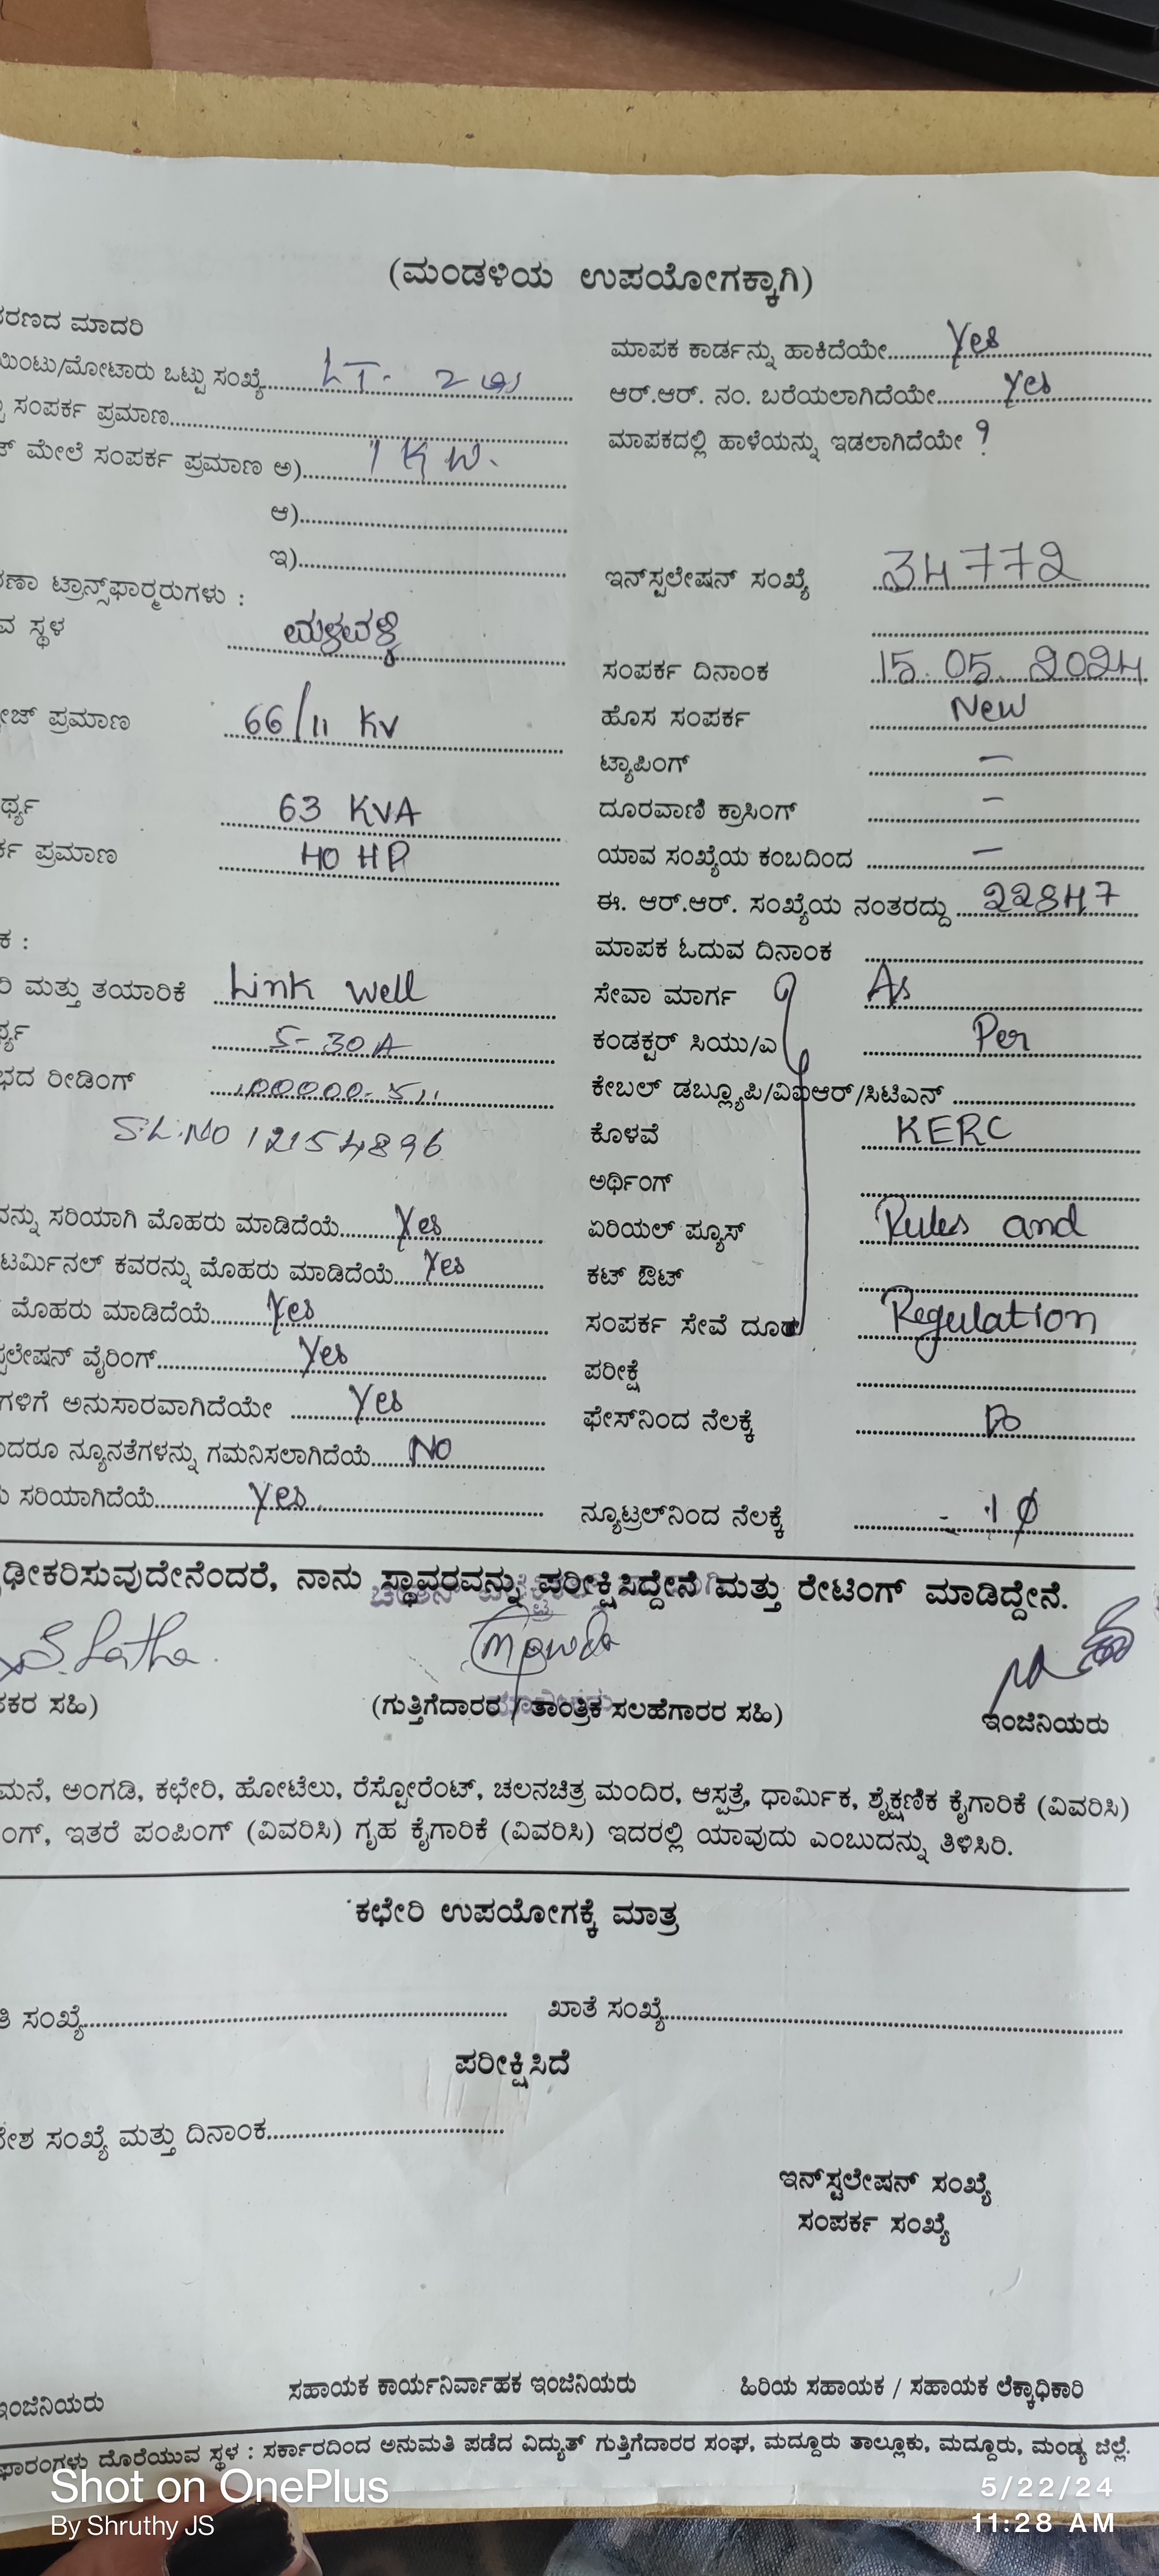 (ಮಂಡಳಿಯ ಉಪಯೋಗಕ್ಕಾಗಿ)
ರಣದ ಮಾದರಿ
ಯಿಂಟು/ಮೋಟಾರು ಒಟ್ಟು ಸಂಖ್ಯೆ LT-
ಸಂಪರ್ಕ ಪ್ರಮಾಣ
ಮೇಲೆ ಸಂಪರ್ಕ ಪ್ರಮಾಣ ಅ) 1 KW.
ಆ)
ಇ)
ಣಾ ಟ್ರಾನ್ಸ್‌ಫಾರ್ಮರುಗಳು :
ವ ಸ್ಥಳ ಮಳವಳ್ಳಿ
ೇಜ್ ಪ್ರಮಾಣ 66/11 KV
ರ್ಥ್ಯ 63 KVA
ರ್ಕ ಪ್ರಮಾಣ 40 HP
ಕ :
ರಿ ಮತ್ತು ತಯಾರಿಕೆ Link well
ರ್ಥ್ಯ 5-30A
ಭದ ರೀಡಿಂಗ್
SL.NO 12154896
ವನ್ನು ಸರಿಯಾಗಿ ಮೊಹರು ಮಾಡಿದೆಯೆ Yes
ಟರ್ಮಿನಲ್ ಕವರನ್ನು ಮೊಹರು ಮಾಡಿದೆಯೆ Yes
ಮೊಹರು ಮಾಡಿದೆಯೆ Yes
ಲೇಷನ್ ವೈರಿಂಗ್ Yes
ಗಳಿಗೆ ಅನುಸಾರವಾಗಿದೆಯೇ Yes
ದರೂ ನ್ಯೂನತೆಗಳನ್ನು ಗಮನಿಸಲಾಗಿದೆಯೆ NO
ಸರಿಯಾಗಿದೆಯೆ Yes
ಮಾಪಕ ಕಾರ್ಡನ್ನು ಹಾಕಿದೆಯೇ Yes
ಆರ್.ಆರ್. ನಂ. ಬರೆಯಲಾಗಿದೆಯೇ Yes
ಮಾಪಕದಲ್ಲಿ ಹಾಳೆಯನ್ನು ಇಡಲಾಗಿದೆಯೇ ?
ಇನ್‌ಸ್ಟಲೇಷನ್ ಸಂಖ್ಯೆ 34772
ಸಂಪರ್ಕ ದಿನಾಂಕ 15.05.2024
ಹೊಸ ಸಂಪರ್ಕ New
ಟ್ಯಾಪಿಂಗ್ —
ದೂರವಾಣಿ ಕ್ರಾಸಿಂಗ್ —
ಯಾವ ಸಂಖ್ಯೆಯ ಕಂಬದಿಂದ —
ಈ. ಆರ್.ಆರ್. ಸಂಖ್ಯೆಯ ನಂತರದ್ದು 22847
ಮಾಪಕ ಓದುವ ದಿನಾಂಕ
ಸೇವಾ ಮಾರ್ಗ As
ಕಂಡಕ್ಟರ್ ಸಿಯು/ಎ Per
ಕೇಬಲ್ ಡಬ್ಲ್ಯೂಪಿ/ವಿಐಆರ್/ಸಿಟಿಎನ್
ಕೊಳವೆ KERC
ಅರ್ಥಿಂಗ್
ಏರಿಯಲ್ ಫ್ಯೂಸ್ Rules and
ಕಟ್ ಔಟ್
ಸಂಪರ್ಕ ಸೇವೆ ದೂರ Regulation
ಪರೀಕ್ಷೆ
ಫೇಸ್‌ನಿಂದ ನೆಲಕ್ಕೆ
ನ್ಯೂಟ್ರಲ್‌ನಿಂದ ನೆಲಕ್ಕೆ 1 Ø
ಢೀಕರಿಸುವುದೇನೆಂದರೆ, ನಾನು ಸ್ಥಾವರವನ್ನು ಪರೀಕ್ಷಿಸಿದ್ದೇನೆ ಮತ್ತು ರೇಟಿಂಗ್ ಮಾಡಿದ್ದೇನೆ.
S. Latha
ಕರ ಸಹಿ) (ಗುತ್ತಿಗೆದಾರರ / ತಾಂತ್ರಿಕ ಸಲಹೆಗಾರರ ಸಹಿ) ಇಂಜಿನಿಯರು
ಮನೆ, ಅಂಗಡಿ, ಕಛೇರಿ, ಹೋಟೆಲು, ರೆಸ್ಟೋರೆಂಟ್, ಚಲನಚಿತ್ರ ಮಂದಿರ, ಆಸ್ಪತ್ರೆ, ಧಾರ್ಮಿಕ, ಶೈಕ್ಷಣಿಕ ಕೈಗಾರಿಕೆ (ವಿವರಿಸಿ)
ಂಗ್, ಇತರೆ ಪಂಪಿಂಗ್ (ವಿವರಿಸಿ) ಗೃಹ ಕೈಗಾರಿಕೆ (ವಿವರಿಸಿ) ಇದರಲ್ಲಿ ಯಾವುದು ಎಂಬುದನ್ನು ತಿಳಿಸಿರಿ.
ಕಛೇರಿ ಉಪಯೋಗಕ್ಕೆ ಮಾತ್ರ
ತಿ ಸಂಖ್ಯೆ ಖಾತೆ ಸಂಖ್ಯೆ
ಪರೀಕ್ಷಿಸಿದೆ
ೇಶ ಸಂಖ್ಯೆ ಮತ್ತು ದಿನಾಂಕ
ಇನ್‌ಸ್ಟಲೇಷನ್ ಸಂಖ್ಯೆ
ಸಂಪರ್ಕ ಸಂಖ್ಯೆ
ಇಂಜಿನಿಯರು ಸಹಾಯಕ ಕಾರ್ಯನಿರ್ವಾಹಕ ಇಂಜಿನಿಯರು ಹಿರಿಯ ಸಹಾಯಕ / ಸಹಾಯಕ ಲೆಕ್ಕಾಧಿಕಾರಿ
ಫಾರಂಗಳು ದೊರೆಯುವ ಸ್ಥಳ : ಸರ್ಕಾರದಿಂದ ಅನುಮತಿ ಪಡೆದ ವಿದ್ಯುತ್ ಗುತ್ತಿಗೆದಾರರ ಸಂಘ, ಮದ್ದೂರು ತಾಲ್ಲೂಕು, ಮದ್ದೂರು, ಮಂಡ್ಯ ಜಿಲ್ಲೆ.
Shot on OnePlus
By Shruthy JS
5/22/24
11:28 AM